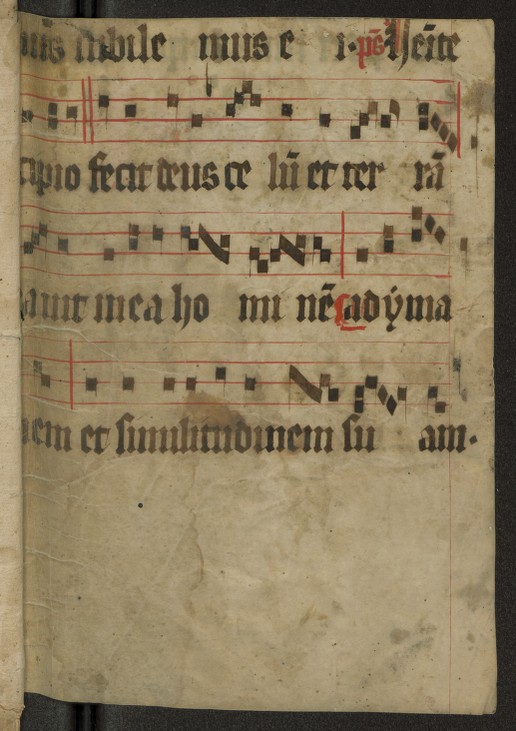 nus sibile mus e i. ps Veīte
cipio fecit deus ce lū et ter rā
auit in ea ho mi nē Ad ẏma
nem et similitudinem su am.